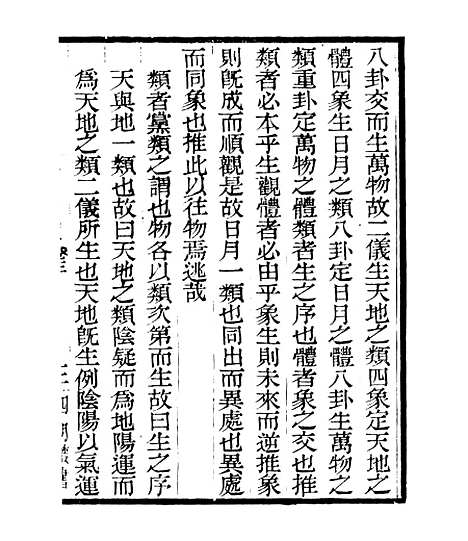 八卦交而生萬物故二儀生天地之類四象定天地之
體四象生日月之類八卦定日月之體八卦生萬物之
類重卦定萬物之體類者生之序也體者象之交也推
類者必本乎生觀體者必由乎象生則未來而逆推象
則旣成而順觀是故日月一類也同出而異處也異處
而同象也推此以往物焉逃哉
類者黨類之謂也物各以類次第而生故曰生之序
天與地一類也故曰天地之類陰疑而爲地陽運而
爲天地之類二儀所生也天地旣生例陰陽以氣運